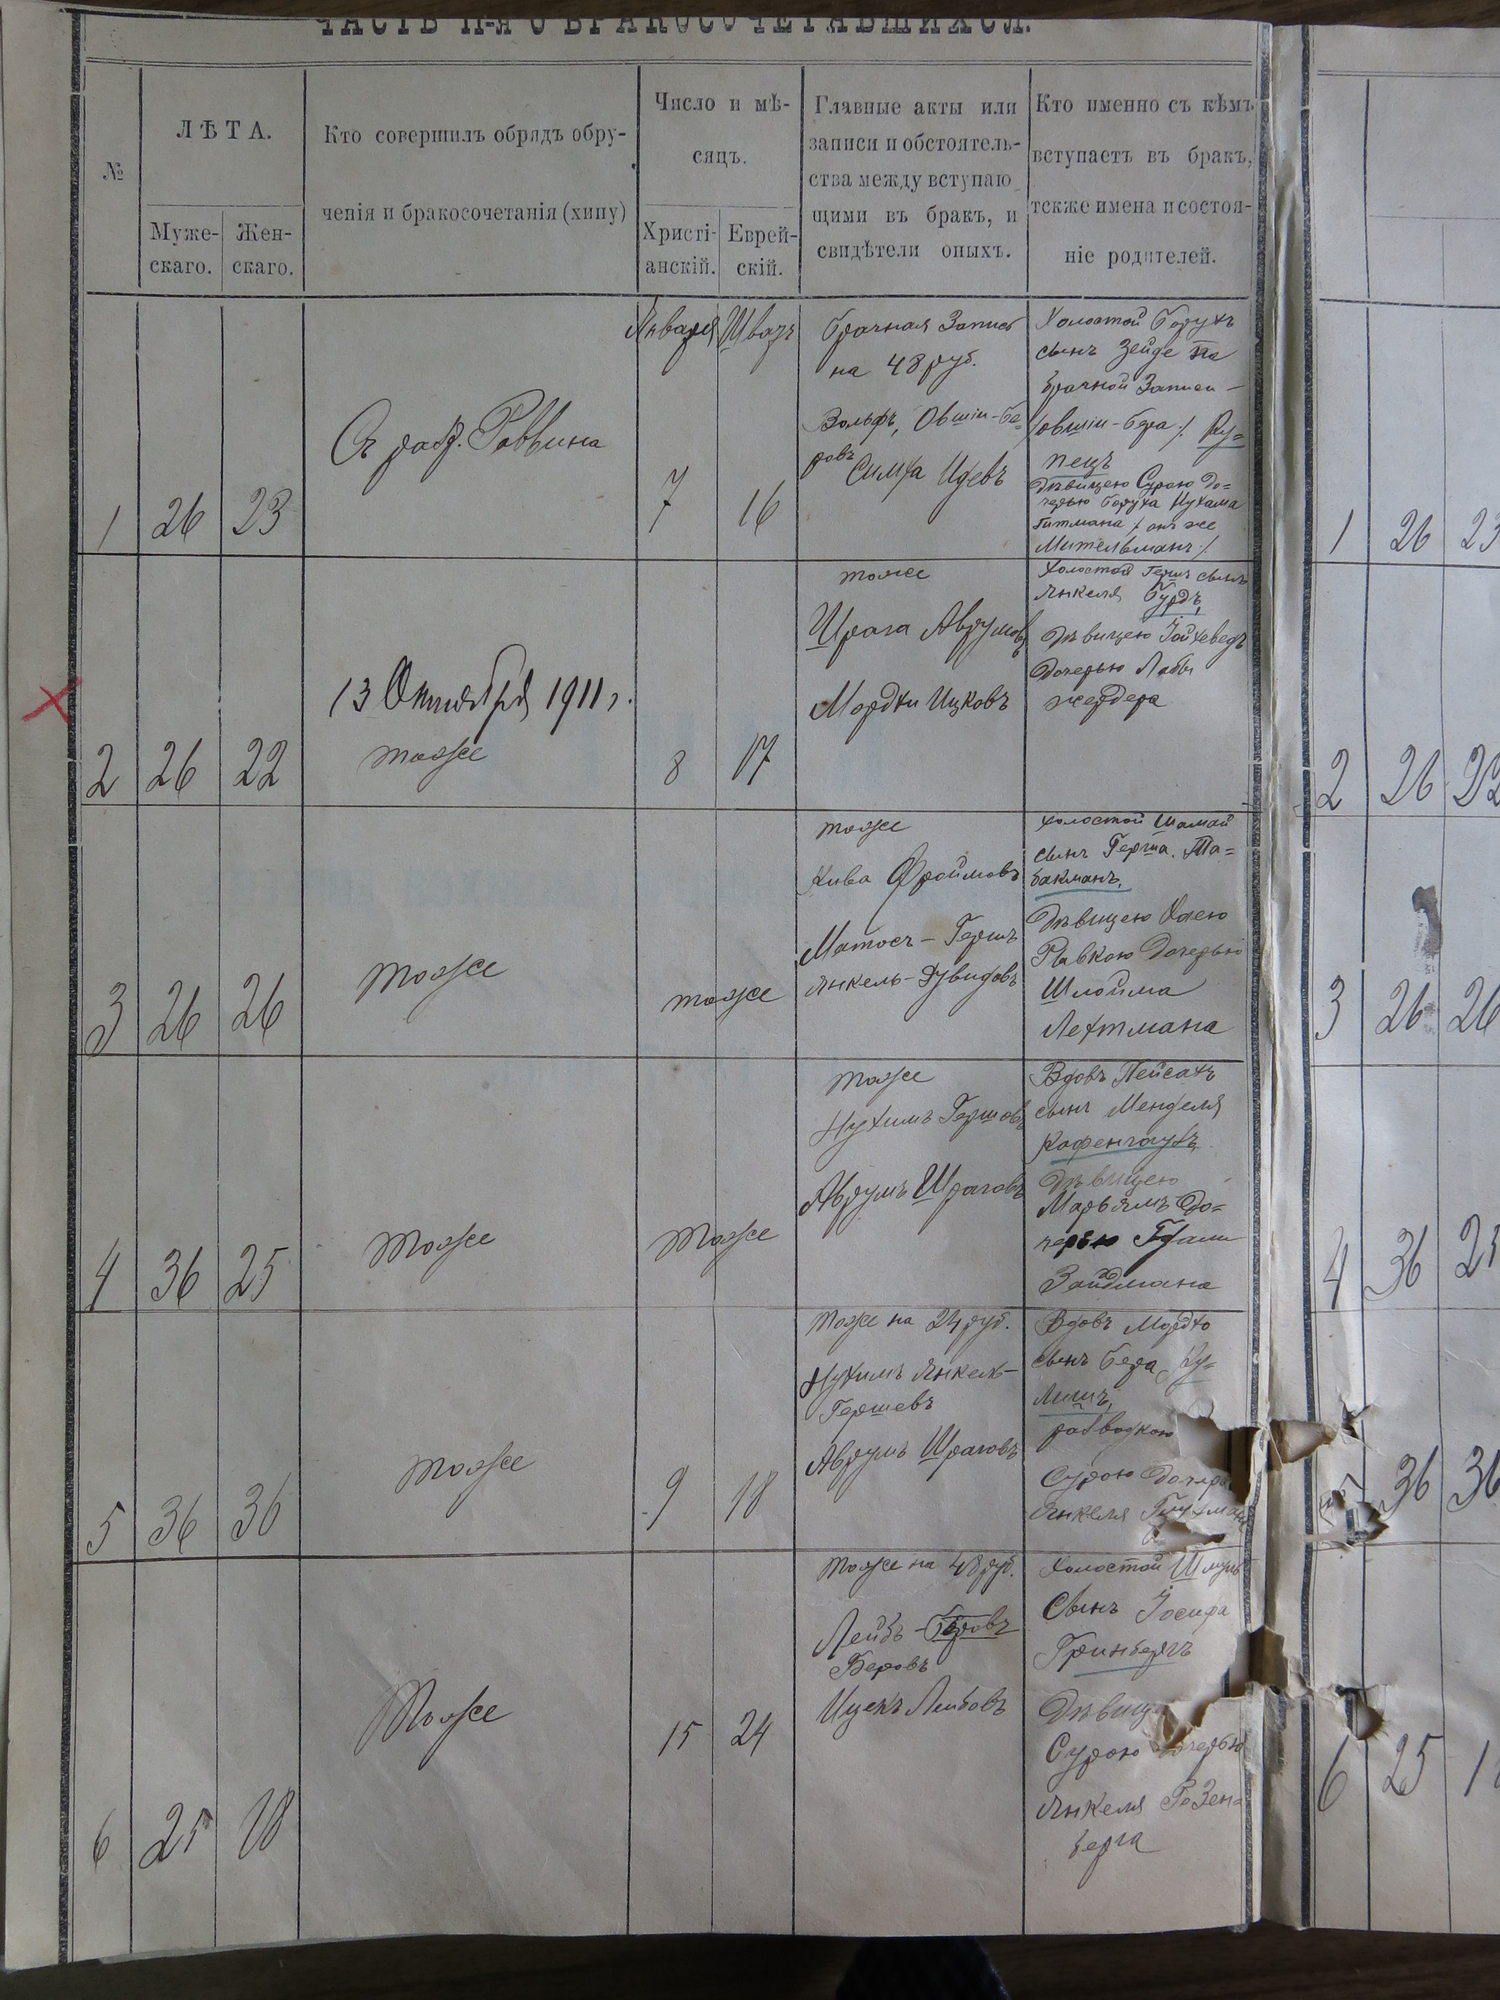 ЧАСТЬ II-я О БРАКОСОЧЕТАВШИХСЯ.
№
ЛѢТА.
Муже-
скаго.
Жен-
скаго.
Кто совершилъ обрядъ обру-
ченія и бракосочетанія (хипу)
Число и мѣ-
сяцъ.
Христі-
анскій.
Еврей-
скій.
Главные акты или
записи и обстоятель-
ства между вступаю
щими въ бракъ, и
свидѣтели оныхъ.
Кто именно съ кѣмъ
вступаетъ въ бракъ,
также имена и состоя-
ніе родителей.
1
26
23
Съ разр. Раввина
Января
7
Шватъ
16
брачная Запись
на 48 руб.
Вольфъ, Овшіи-Бе-
ровъ
Симха Идевъ
Холостой Борухъ
сынъ Зейде по
брачной Записи -
/овшіи-бера/. Ку-
пецъ
Дѣвицею Сурою до-
черью Боруха Нухима
Гитмана / онъ же
Мительманъ /
2
26
22
13 Октября 1911 г.
тоже
8
17
тоже
Шрага Аврумовъ
Мордхи Ицковъ
Холостой Герш сынъ
Янкеля Бурдъ,
Дѣвицею Іойхеведъ
Дочерью Лейбы
жердера
3
26
26
тоже
тоже
тоже
Кива Фроймовъ
Матосъ - Гершъ
Янкель-Дувидовъ
Холостой Шамай
сынъ Герша Та-
бакманъ,
Дѣвицею Хаею
Рывкою Дочерью
Шлойма
Лехтмана
4
36
25
тоже
тоже
тоже
Нухимъ Гершовъ
Аврумъ Шраговъ
Вдовъ Пейсахъ
сынъ Менделя
Кофенгаузъ
Дѣвицею
Марьямъ До-
черью Гдали
Зайдмана
5
36
36
тоже
9
18
Тоже на 24 руб.
Нухимъ Янкель-
Гершевъ
Аврумъ Шраговъ
Вдовъ Мордко
сынъ Бера Ку-
лишъ,
разводкою
Сурою Дочерь
Янкеля
6
25
18
Тоже
15
24
Тоже на 48 руб.
Лейбъ - Беровъ
Беровъ
Ицекъ Лейбовъ
Холостой Шмуль
Сынъ Іосифа
Гринбергъ
Дѣвиц
Сурою Дочерью
Янкеля Розен-
берга
1
26
23
2
26
22
3
26
26
4
36
25
5
36
36
6
25